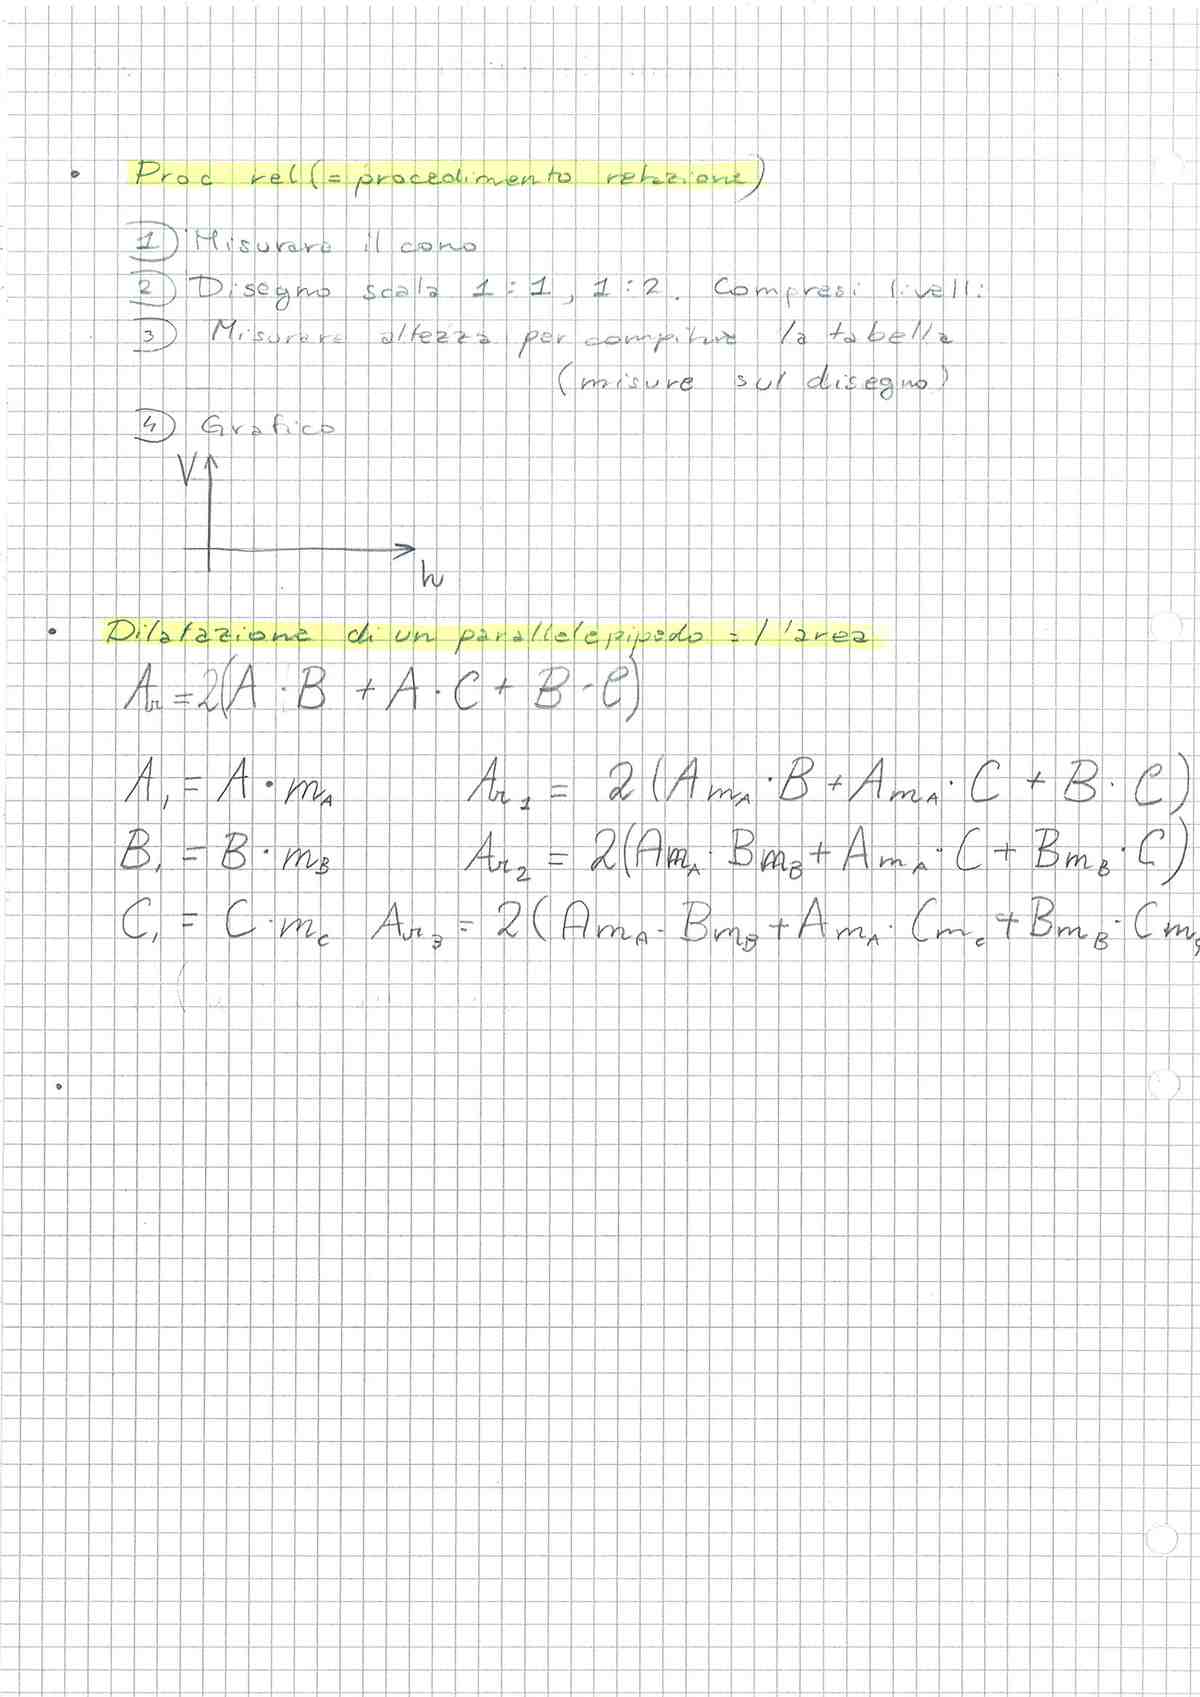 • Proc rel (= procedimento relazione)
1) Misurare il cono
2) Disegno scala 1:1, 1:2. Compresi livelli
3) Misurare altezza per compilare la tabella
(misure sul disegno)
4) Grafico
V
h
• Dilatazione di un parallelepipedo = l'area
Ar = 2(A · B + A · C + B · C)
A₁ = A · m_A    Ar₁ = 2(Am_A · B + Am_A · C + B · C)
B₁ = B · m_B    Ar₂ = 2(Am_A · Bm_B + Am_A · C + Bm_B · C)
C₁ = C · m_c    Ar₃ = 2(Am_A · Bm_B + Am_A · Cm_c + Bm_B · Cm_c
•